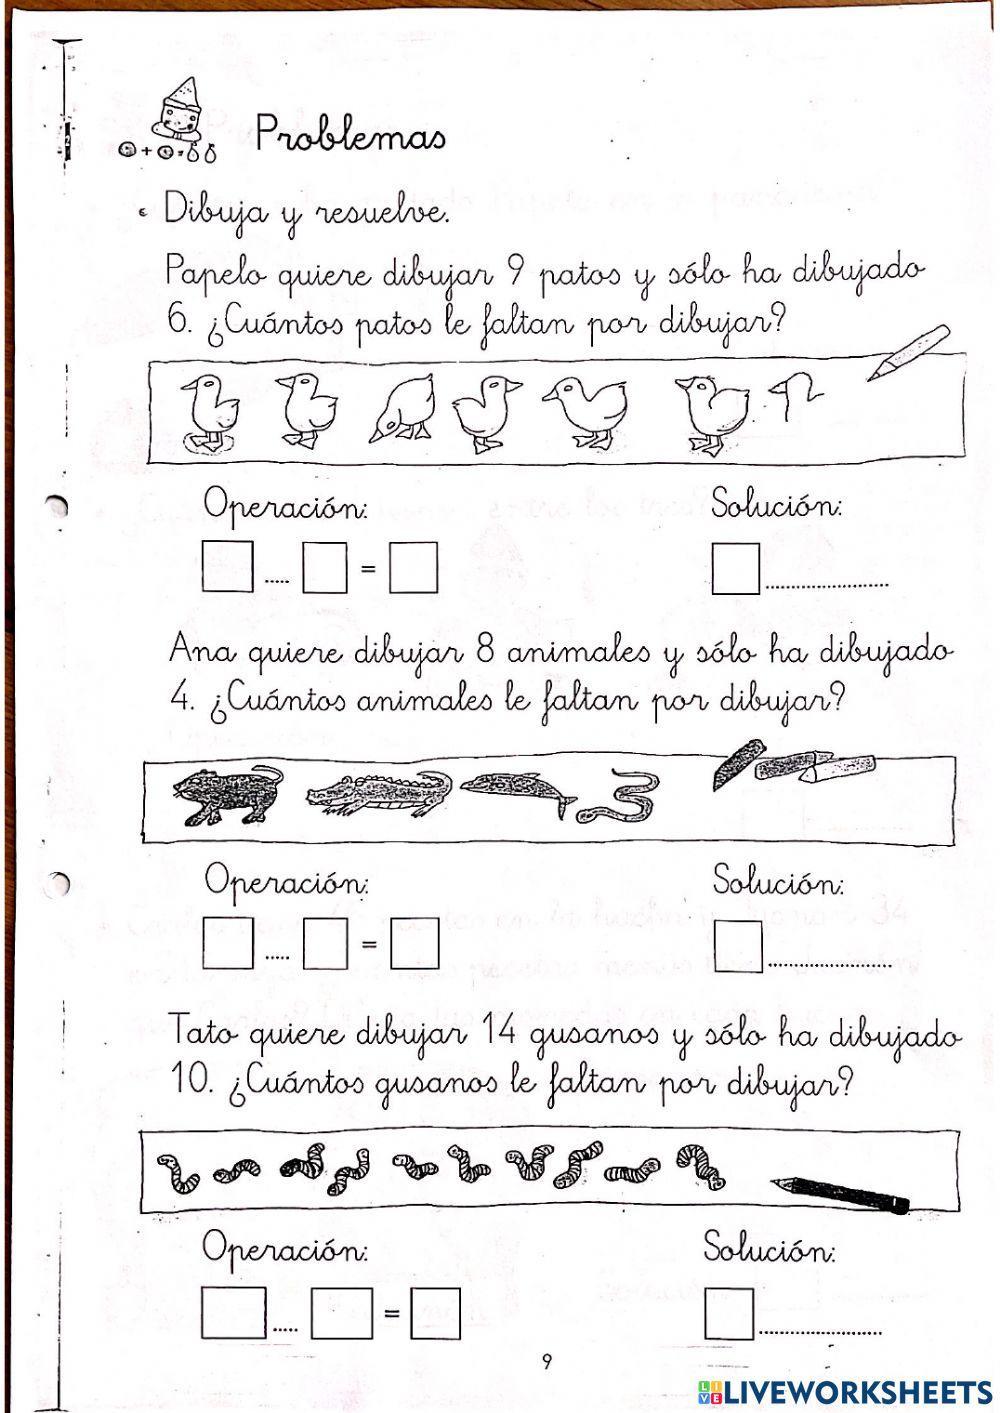 Problemas
Dibuja y resuelve.
Papelo quiere dibujar 9 patos y sólo ha dibujado
6. ¿Cuántos patos le faltan por dibujar?
Operación: Solución:
..... = .....................
Ana quiere dibujar 8 animales y sólo ha dibujado
4. ¿Cuántos animales le faltan por dibujar?
Operación: Solución:
..... = .....................
Tato quiere dibujar 14 gusanos y sólo ha dibujado
10. ¿Cuántos gusanos le faltan por dibujar?
Operación: Solución:
..... = .....................
9
LIVEWORKSHEETS